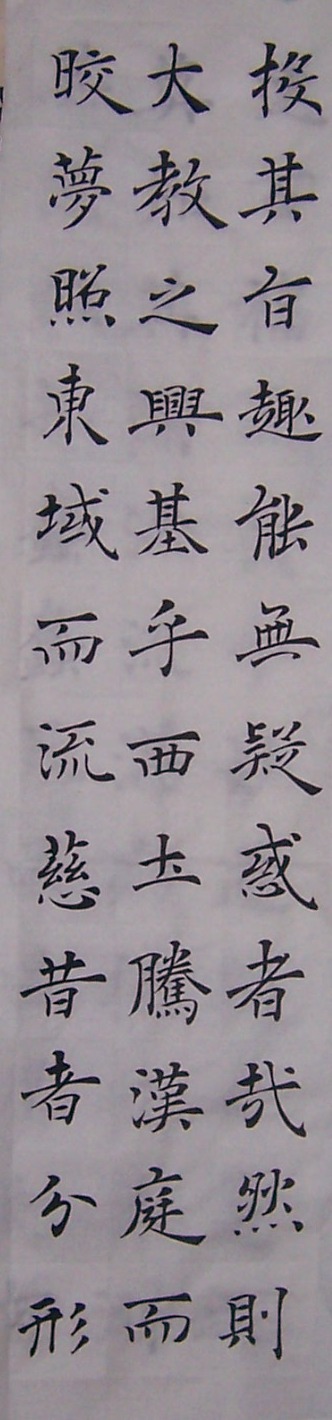 投其旨趣能無疑惑者哉然則
大教之興基乎西土騰漢庭而
皎夢照東域而流慈昔者分形